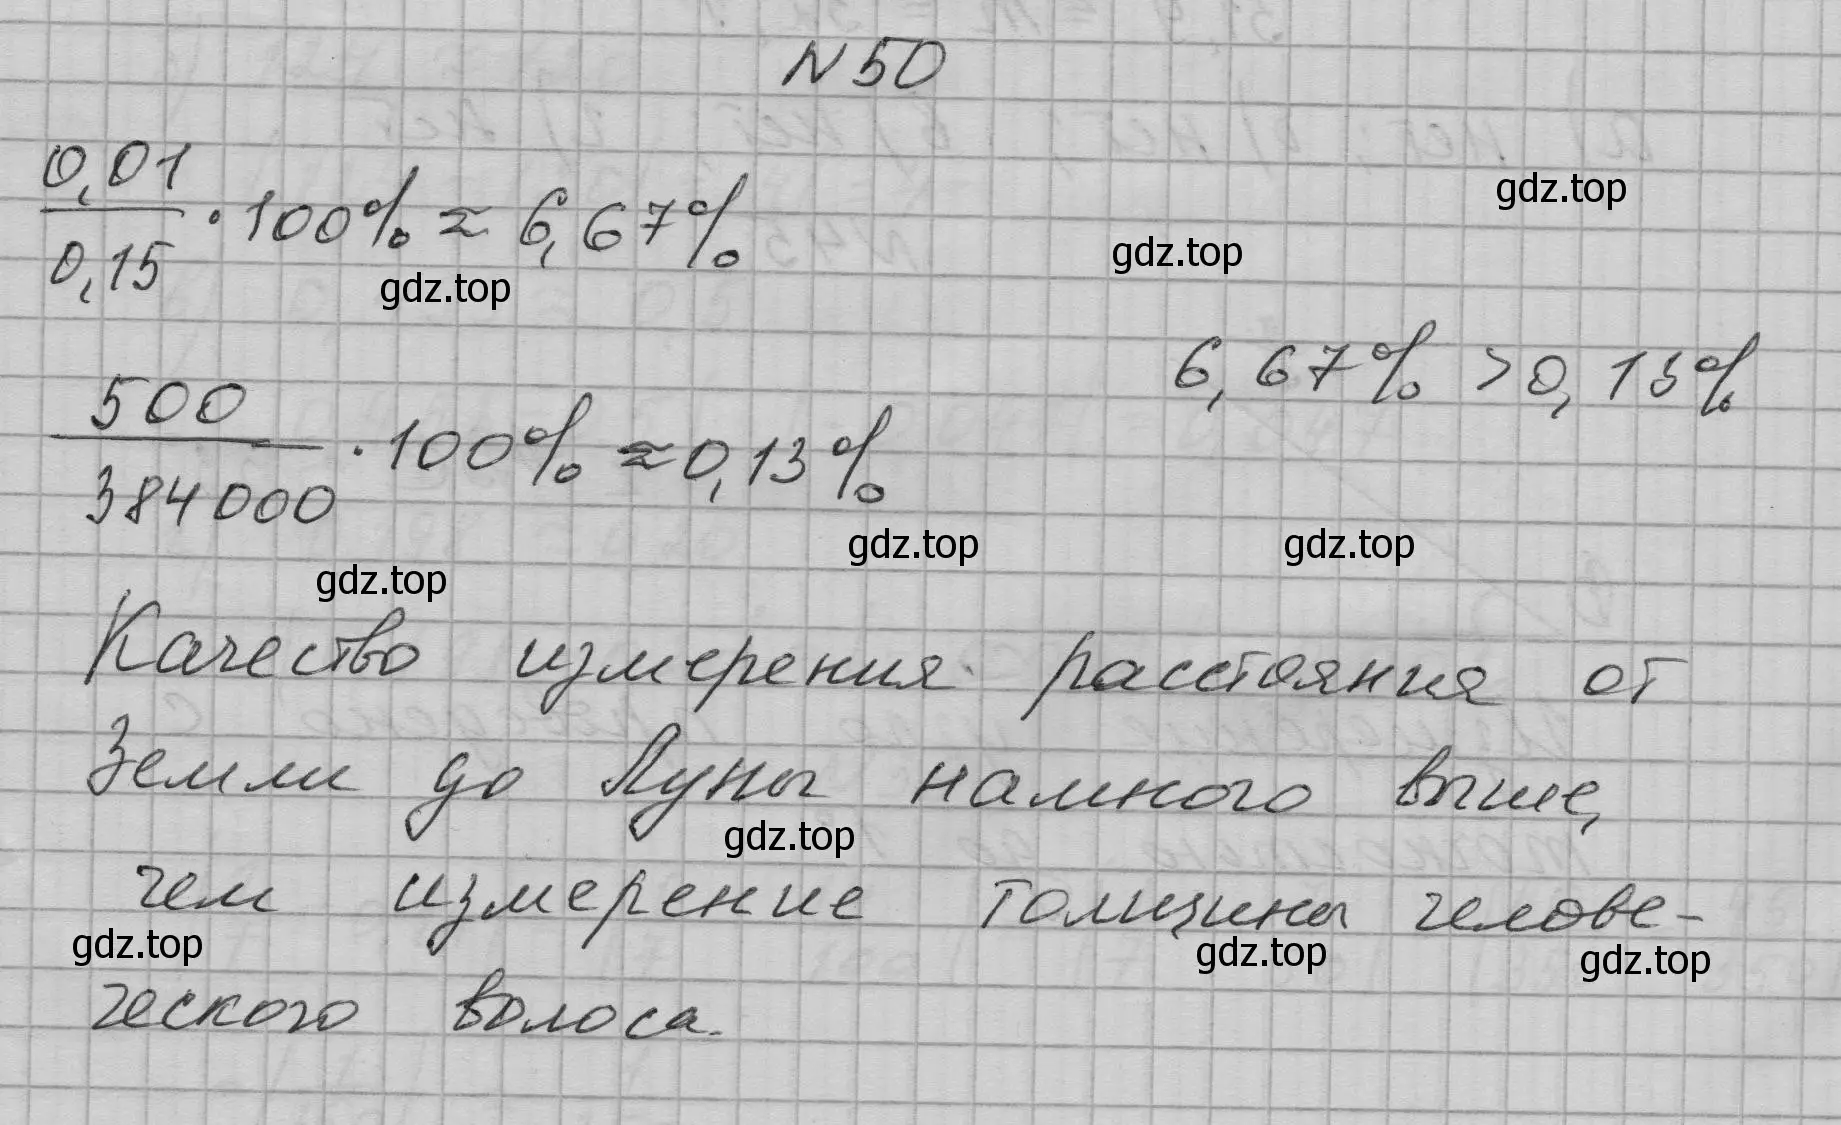 N 50
0,01
gdz.top
· 100% ≈ 6,67%
gdz.top
0,15
gdz.top
6,67% > 0,13%
500
· 100% ≈ 0,13%
384000
gdz.top
gdz.top
gdz.top
Качество измерения расстояния от
Земли до Луны намного выше,
gdz.top
чем измерение толщины челове-
gdz.top
gdz.top
gdz.top
ческого волоса.